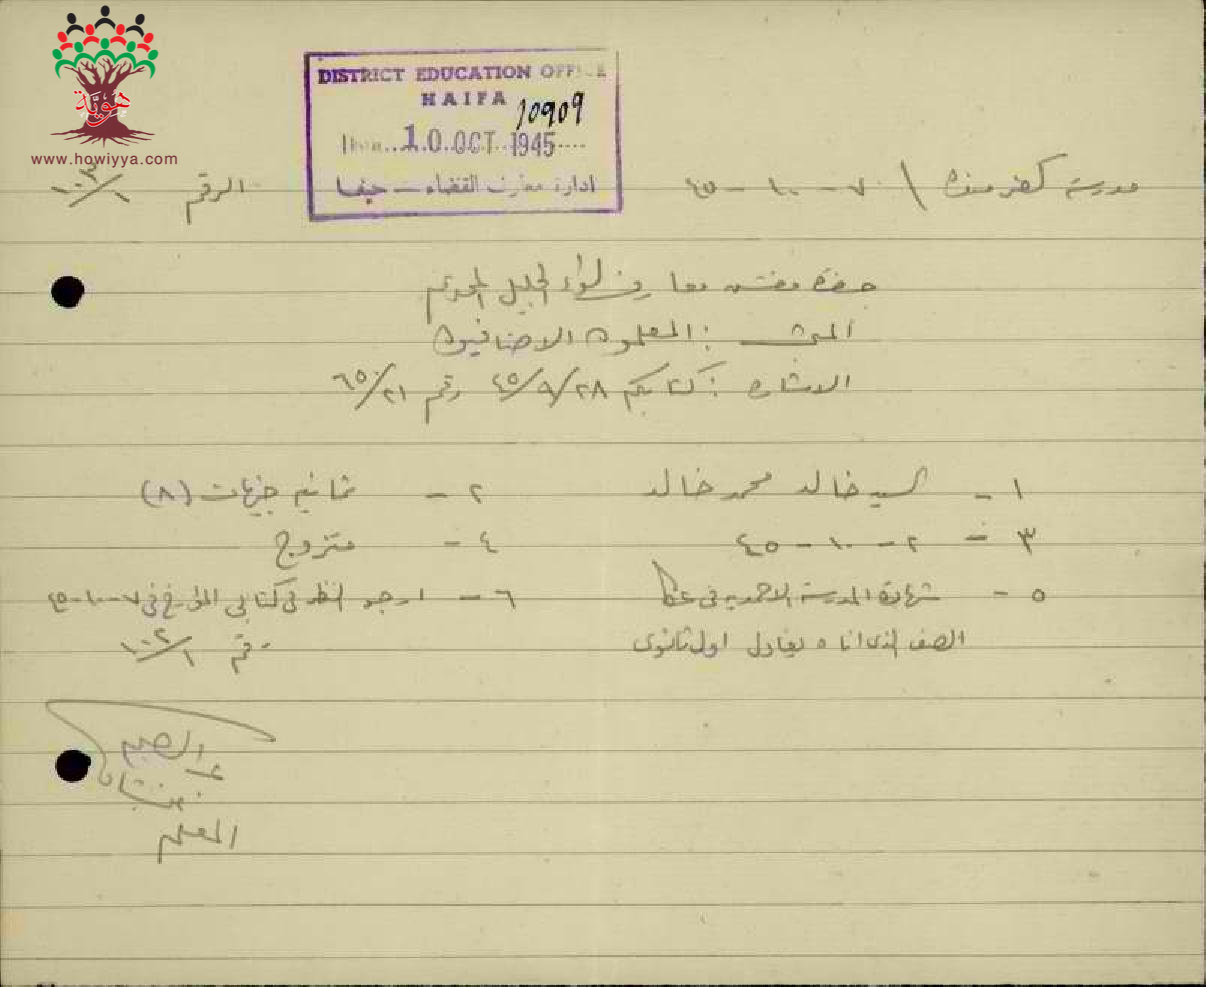 هوية
www.howiyya.com
DISTRICT EDUCATION OFFICE
HAIFA
10909
10 OCT 1945
ادارة معارف القضاء - حيفا
مدرسة كفر منده / ٧ - ١٠ - ٤٥
الرقم ١٠٣/١
حضرة مفتش معارف لواء الجليل المحترم
: المعلمون الاضافيون
الاشارة : كتابكم ٢٨/٩/٤٥ رقم ٦٥/٢١
١ - السيد خالد محمد خالد
٢ - ثمانية جنيهات (٨)
٣ - ٢ - ١٠ - ٤٥
٤ - متزوج
٥ - شهادة المدرسة الاحمدية في عكا
الصف الذي انهاه يعادل اول ثانوي
٦ - ارجو النظر في كتابي المؤرخ في ٧-١٠-٤٥
رقم ١٠٢/١
المعلم